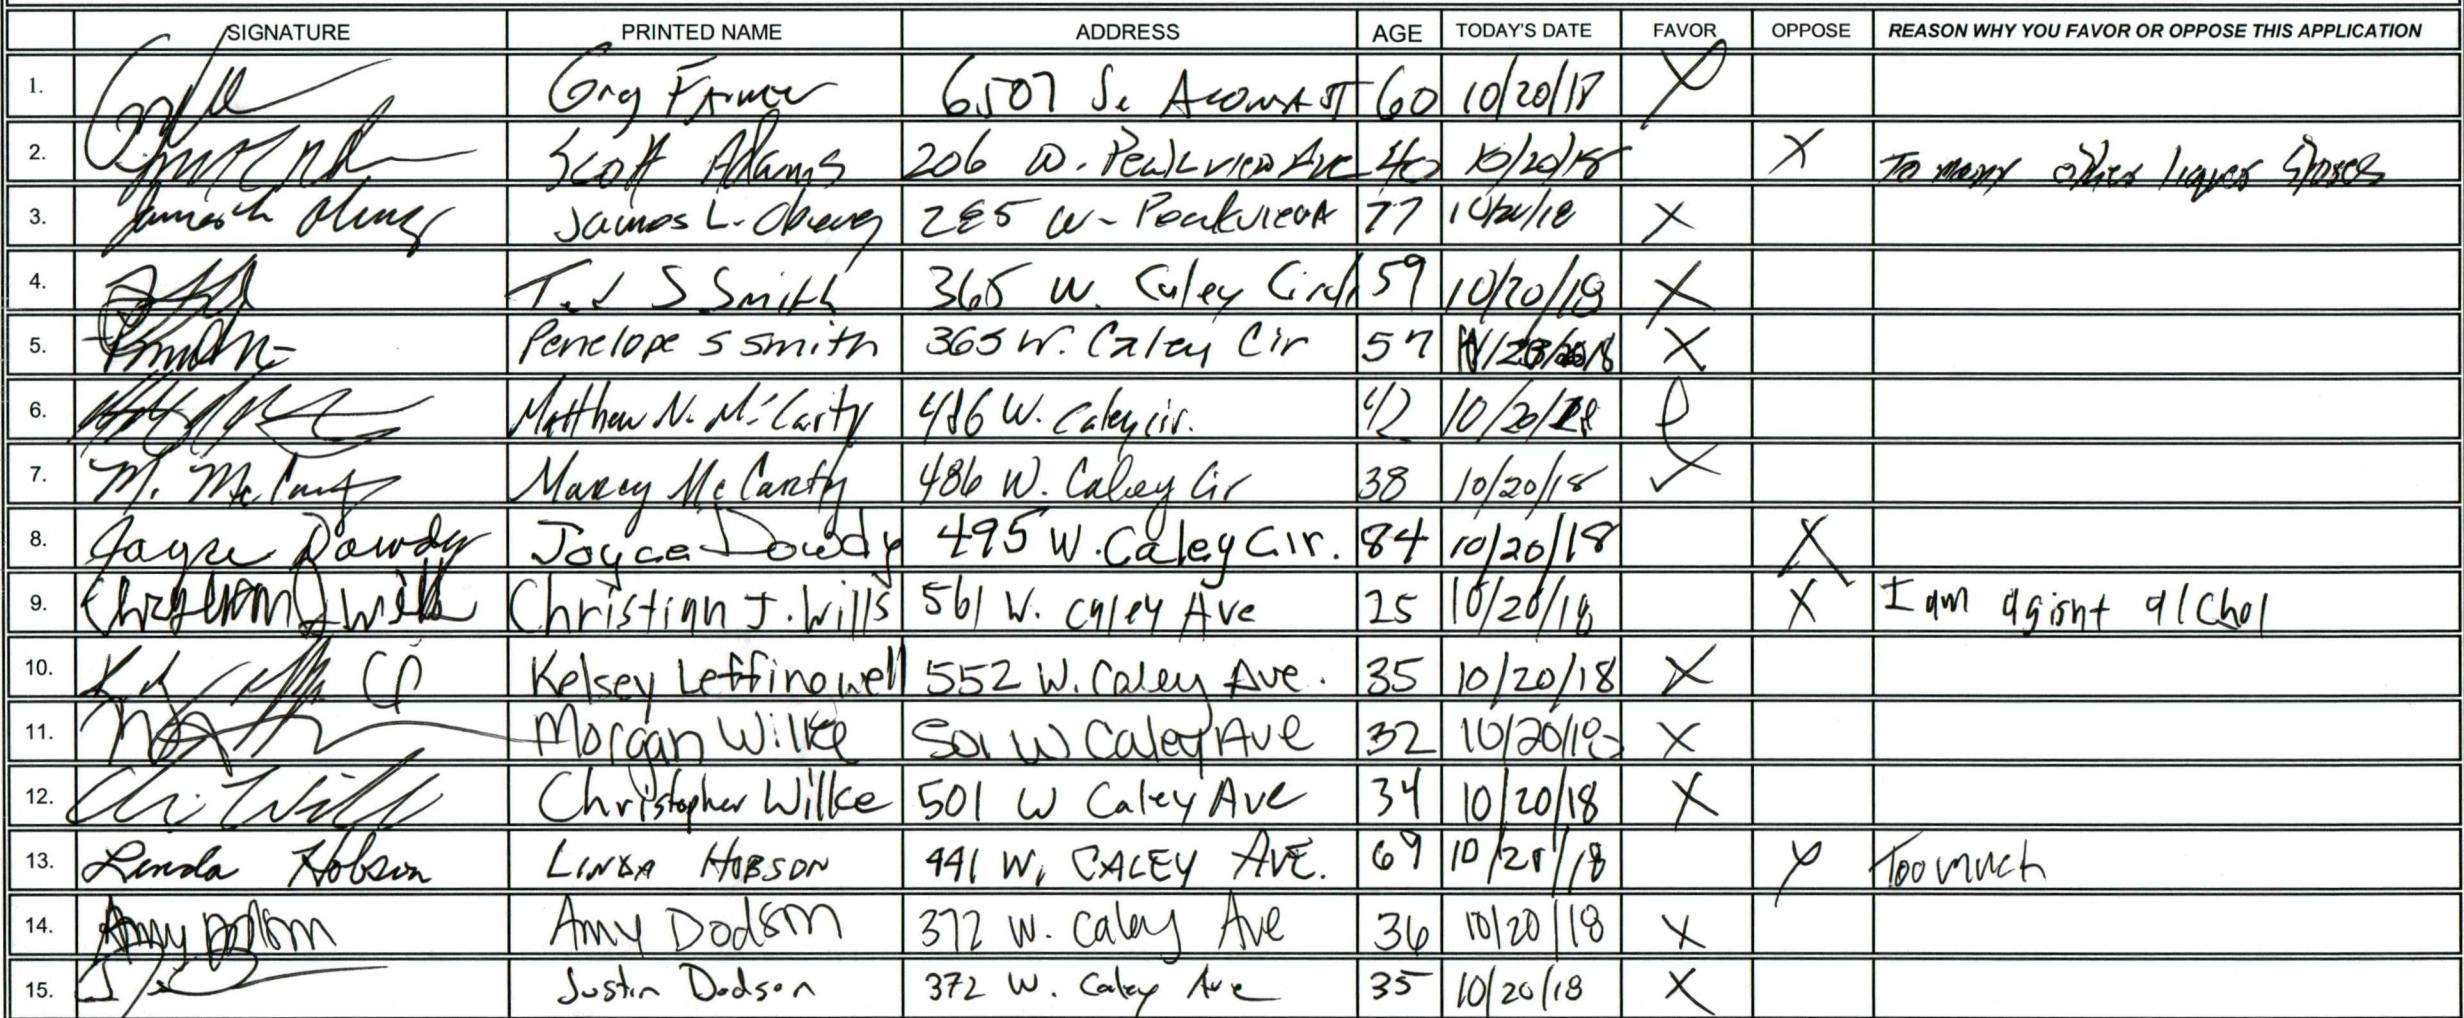 SIGNATURE PRINTED NAME ADDRESS AGE TODAY'S DATE FAVOR OPPOSE REASON WHY YOU FAVOR OR OPPOSE THIS APPLICATION
1. Greg Farmer 6507 S. Acoma ST 60 10/20/18 X
2. Scott Adams 206 W. Peakview Ave 40 10/20/18 X To many other liquor stores
3. James L. 285 W- Peakview 77 10/20/18 X
4. Ted S Smith 365 W. Caley Circle 59 10/20/18 X
5. Penelope S Smith 365 W. Caley Cir 57 X
6. Matthew N. McCarty 486 W. Caley Cir. 42 10/20/18
7. M. McCarty Marcy McCarty 486 W. Caley Cir 38 10/20/18 ✓
8. Joyce Dowdy Joyce Dowdy 495 W. Caley Cir. 84 10/20/18 X
9. Christian J Wills Christian J. Wills 561 W. Caley Ave 25 10/20/18 X I am agisnt alchol
10. Kelsey Leffingwell 552 W. Caley Ave. 35 10/20/18 X
11. Morgan Wilke 501 W Caley Ave 32 10/20/18 X
12. Christopher Wilke 501 W Caley Ave 34 10/20/18 X
13. Linda Hobson LINDA HOBSON 441 W. CALEY AVE. 69 X Too much
14. Amy Dodson Amy Dodson 372 W. Caley Ave 36 10/20/18 X
15. Justin Dodson 372 W. Caley Ave 35 10/20/18 X